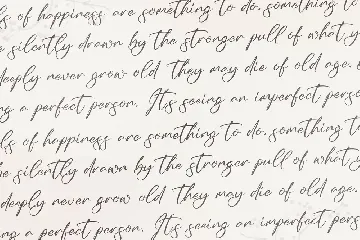 ls of happiness are something to do, something to
e silently drawn by the stronger pull of what y
deeply never grow old They may die of old age.
ng a perfect person. It's seeing an imperfect perso
ds of happiness are something to do, something t
be silently drawn by the stronger pull of what y
deeply never grow old They may die of old age.
ng a perfect person. It's seeing an imperfect pers